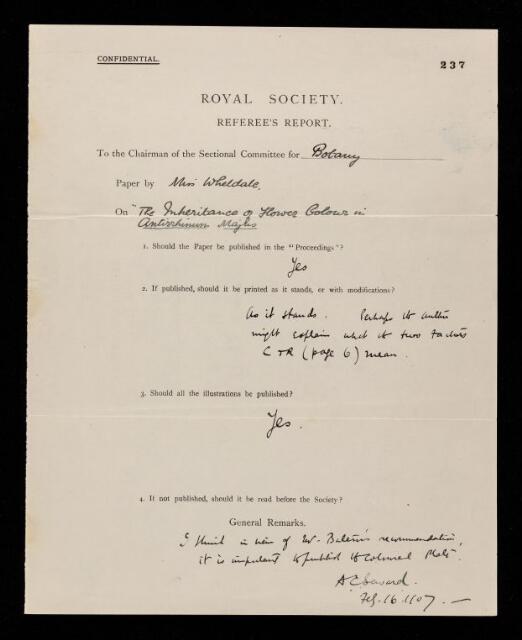 CONFIDENTIAL.
237
ROYAL SOCIETY.
REFEREE'S REPORT.
To the Chairman of the Sectional Committee for Botany
Paper by Miss Wheldale.
On "The Inheritance of Flower Colour in
Antirrhinum Majus
1. Should the Paper be published in the "Proceedings"?
Yes
2. If published, should it be printed as it stands, or with modifications?
As it stands. Perhaps the author
might explain what the two factors
C & R (page 6) mean.
3. Should all the illustrations be published?
Yes.
4. If not published, should it be read before the Society?
General Remarks.
I think in view of Mr. Bateson's recommendation,
it is important to publish the coloured Plate.
A C Seward.
Feb. 16. 1907. —